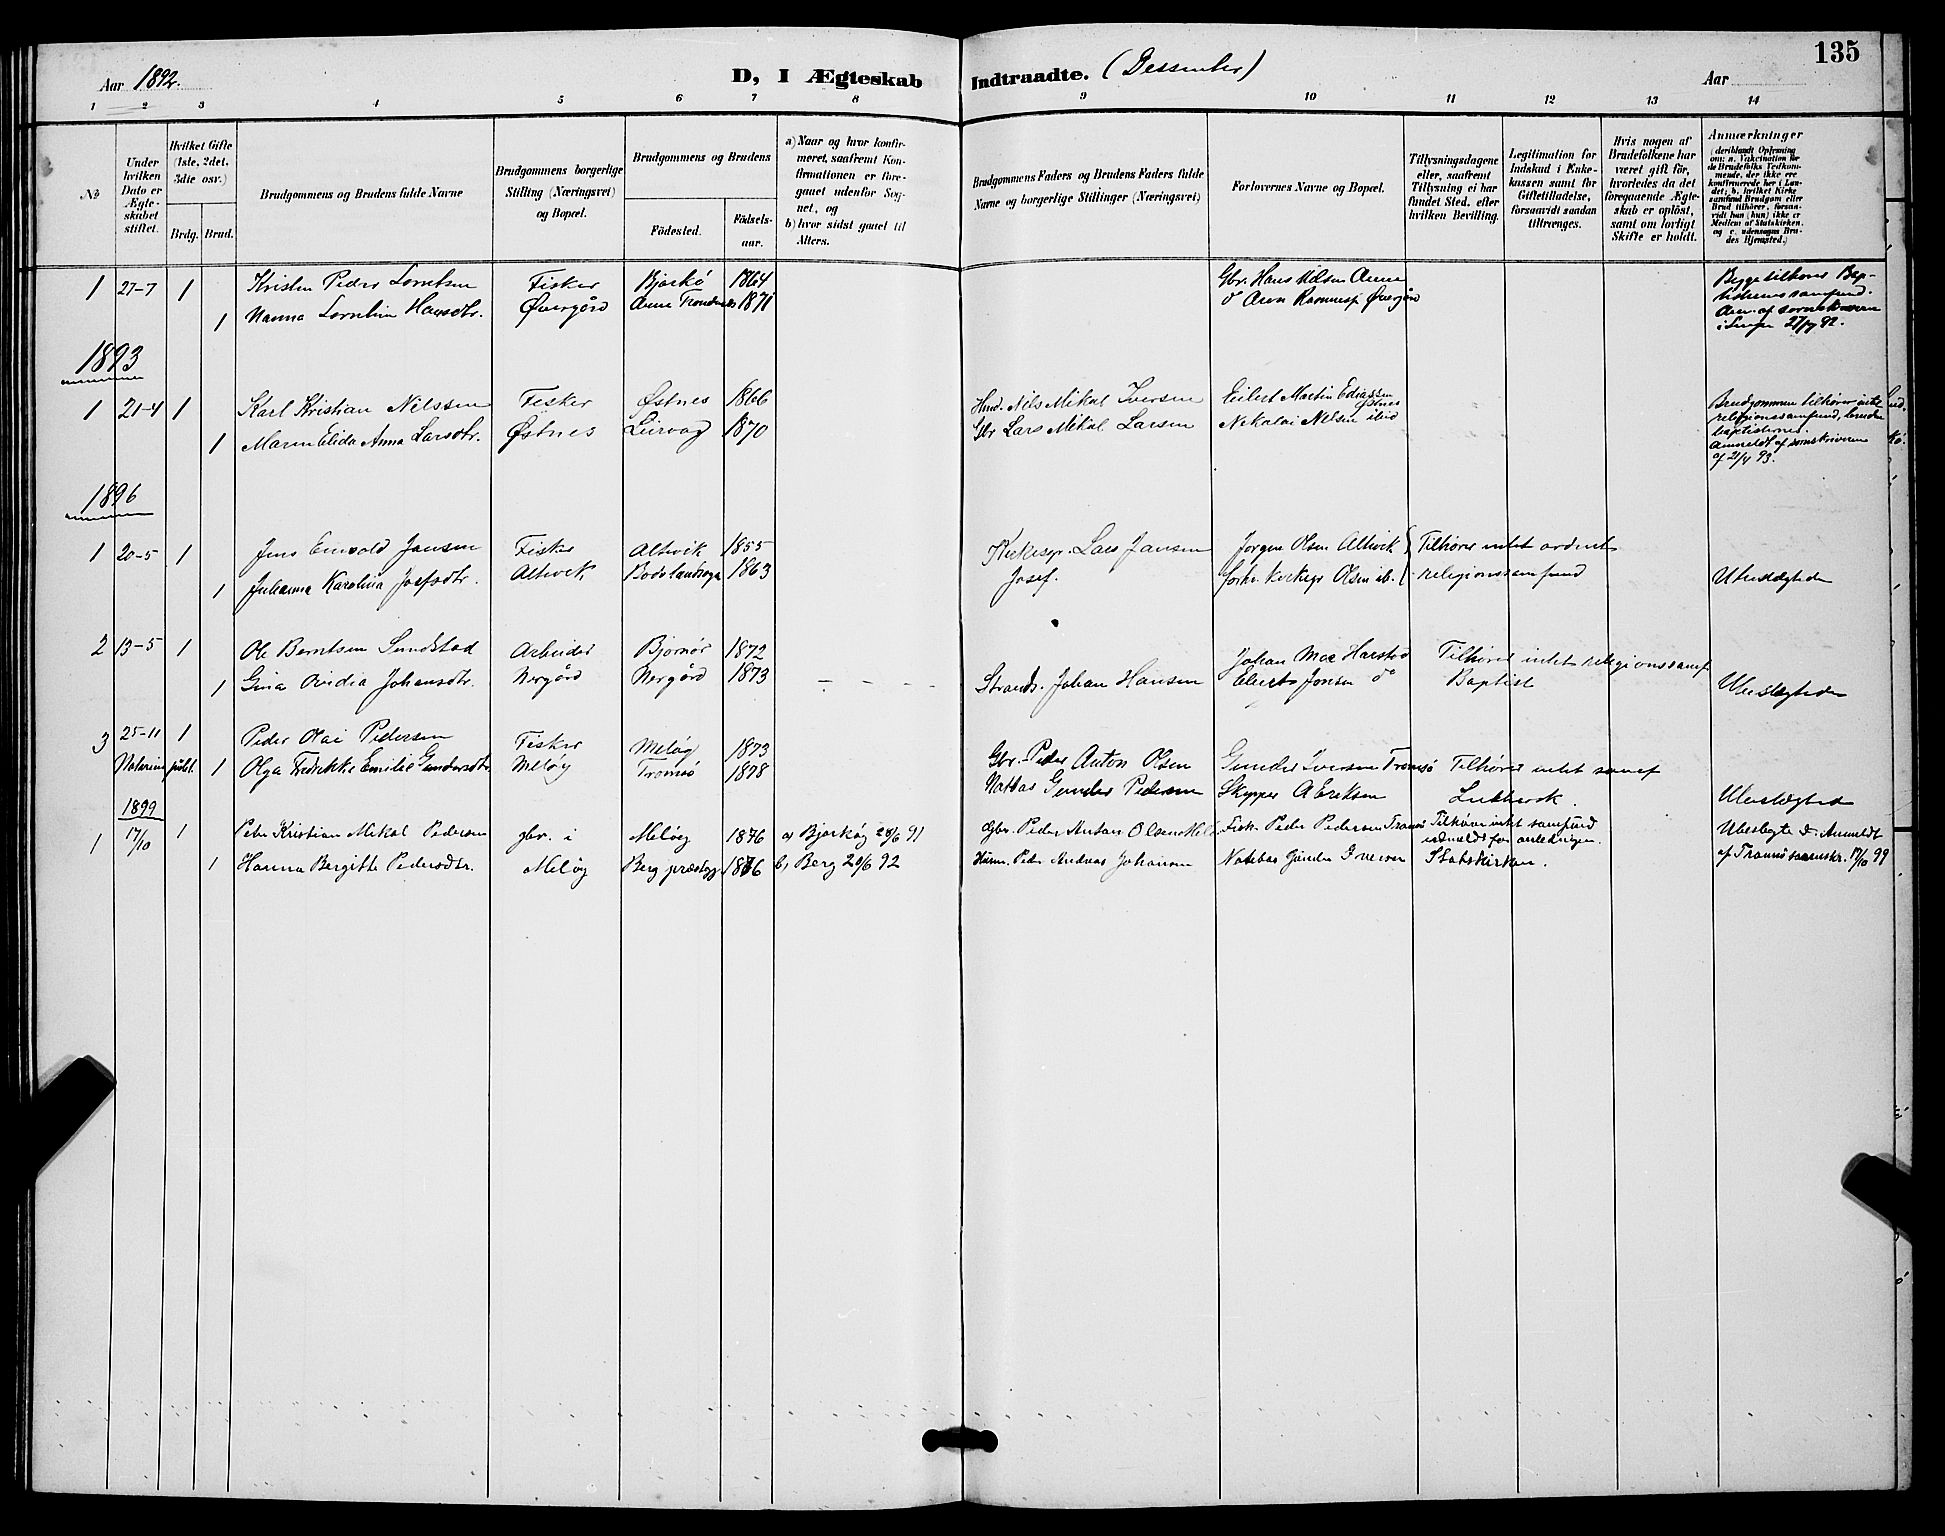 135
Aar 1892.
D, I Ægteskab Indtraadte. (Dessenter)
Aar
1 2 3 4 5 6 7 8 9 10 11 12 13 14
No
Under hvilken Dato er Ægteskabet stiftet.
Hvilket Gifte (1ste, 2det, 3die osv.)
Brdg. Brud.
Brudgommens og Brudens fulde Navne
Brudgommens borgerlige Stilling (Næringsvei) og Bopæl.
Brudgommens og Brudens
Fødested.
Fødselsaar.
a) Naar og hvor konfirmeret, saafremt Konfirmationen er foregaaet udenfor Sognet, og
b) hvor sidst gaaet til Alters.
Brudgommens Faders og Brudens Faders fulde Navne og borgerlige Stillinger (Næringsvei)
Forlovernes Navne og Bopæl.
Tillysningsdagene eller, saafremt Tillysning ei har fundet Sted, efter hvilken Bevilling.
Legitimation for Indskud i Enkekassen samt for Giftetilladelse, forsaavidt saadan tiltrænges.
Hvis nogen af Brudefolkene har været gift før, hvorledes da det foregaaende Ægteskab er opløst, samt om lovligt Skifte er holdt.
Anmærkninger (deriblandt Oplysning om: a. Vakcination for de Brudefolks Vedkommende, der ikke ere konfirmerede her i Landet; b. hvilket Kirkesamfund Brudgom eller Brud tilhører, forsaavidt han (hun) ikke er Medlem af Statskirken, og c. udensogns Brudes Hjemsted.)
1 27-7 1 Kristen Peder Lorntsen Fisker Bjarkö 1864 Gbr. Hans Nilsen Aune Begge tilhører Bap-
1 Nanna Hansdtr. Øvergård Aune Trondenes 1871 do Aron Øvergård tistsamfund.
i 27/7 92.
1893
1 21-4 1 Karl Kristian Nilssen Fisker Østnes 1866 Nils Mikal Iversen Eilert Martin Østnes Brudgommen tilhører intet
1 Maren Elida Anna Larsdtr. Østnes Leirvåg 1870 Gbr Lars Mikal Larsen Nikolai Nilsen ibid religionssamfund, bruden baptisternes.
Anmeldt af sorenskriveren
af 21/4 93.
1896
1 20-5 1 Jens Jansen Fisker Altevik 1855 Kirkesgr. Lars Jansen Jørgen Olsen Altevik Tilhører intet ordent.
1 Johanna Karolina Josefsdtr. Altevik Bodø landsogn 1863 Josef. Olsen ib. religionssamfund Ubeslægtede
2 13-5 1 Ole Berntsen Sundstad Arbeider Bjørnør 1872 Johan Moe Harstad Tilhører intet religionssamf
1 Gina Ovidia Johansdtr. Nergård Nergård 1873 Strands. Johan Hansen Elert Jonsen do Baptist Ubeslægtede
3 25-11 1 Peder Olai Pedersen Fisker Meløy 1873 Gbr. Peder Anton Olsen Gunder Iversen Tromsø Tilhører intet samf
Notarius publ. 1 Olga Fredrikke Emilie Gundersdtr Meløy Tromsø 1878 Gunder Pedersen Skipper A Eriksen Luthersk. Ubeslægtede
1899
1 17/10 1 Peter Kristian Mikal Pedersen gbr. i Meløy 1876 a) Bjarkøy 28/6 91 Gbr. Peder Anton Olsen Fisk. Peder Pedersen Tromsø Tilhører intet samfund Ubeslegtede. Anmeldt
1 Hanna Bergitte Pedersdtr. Meløy Berg præstegj. 1876 b) Berg 20/6 92 Husm. Peder Andreas Johansen Gunder Iversen Statskirken. af Tromsø sorenskr. 17/10 99